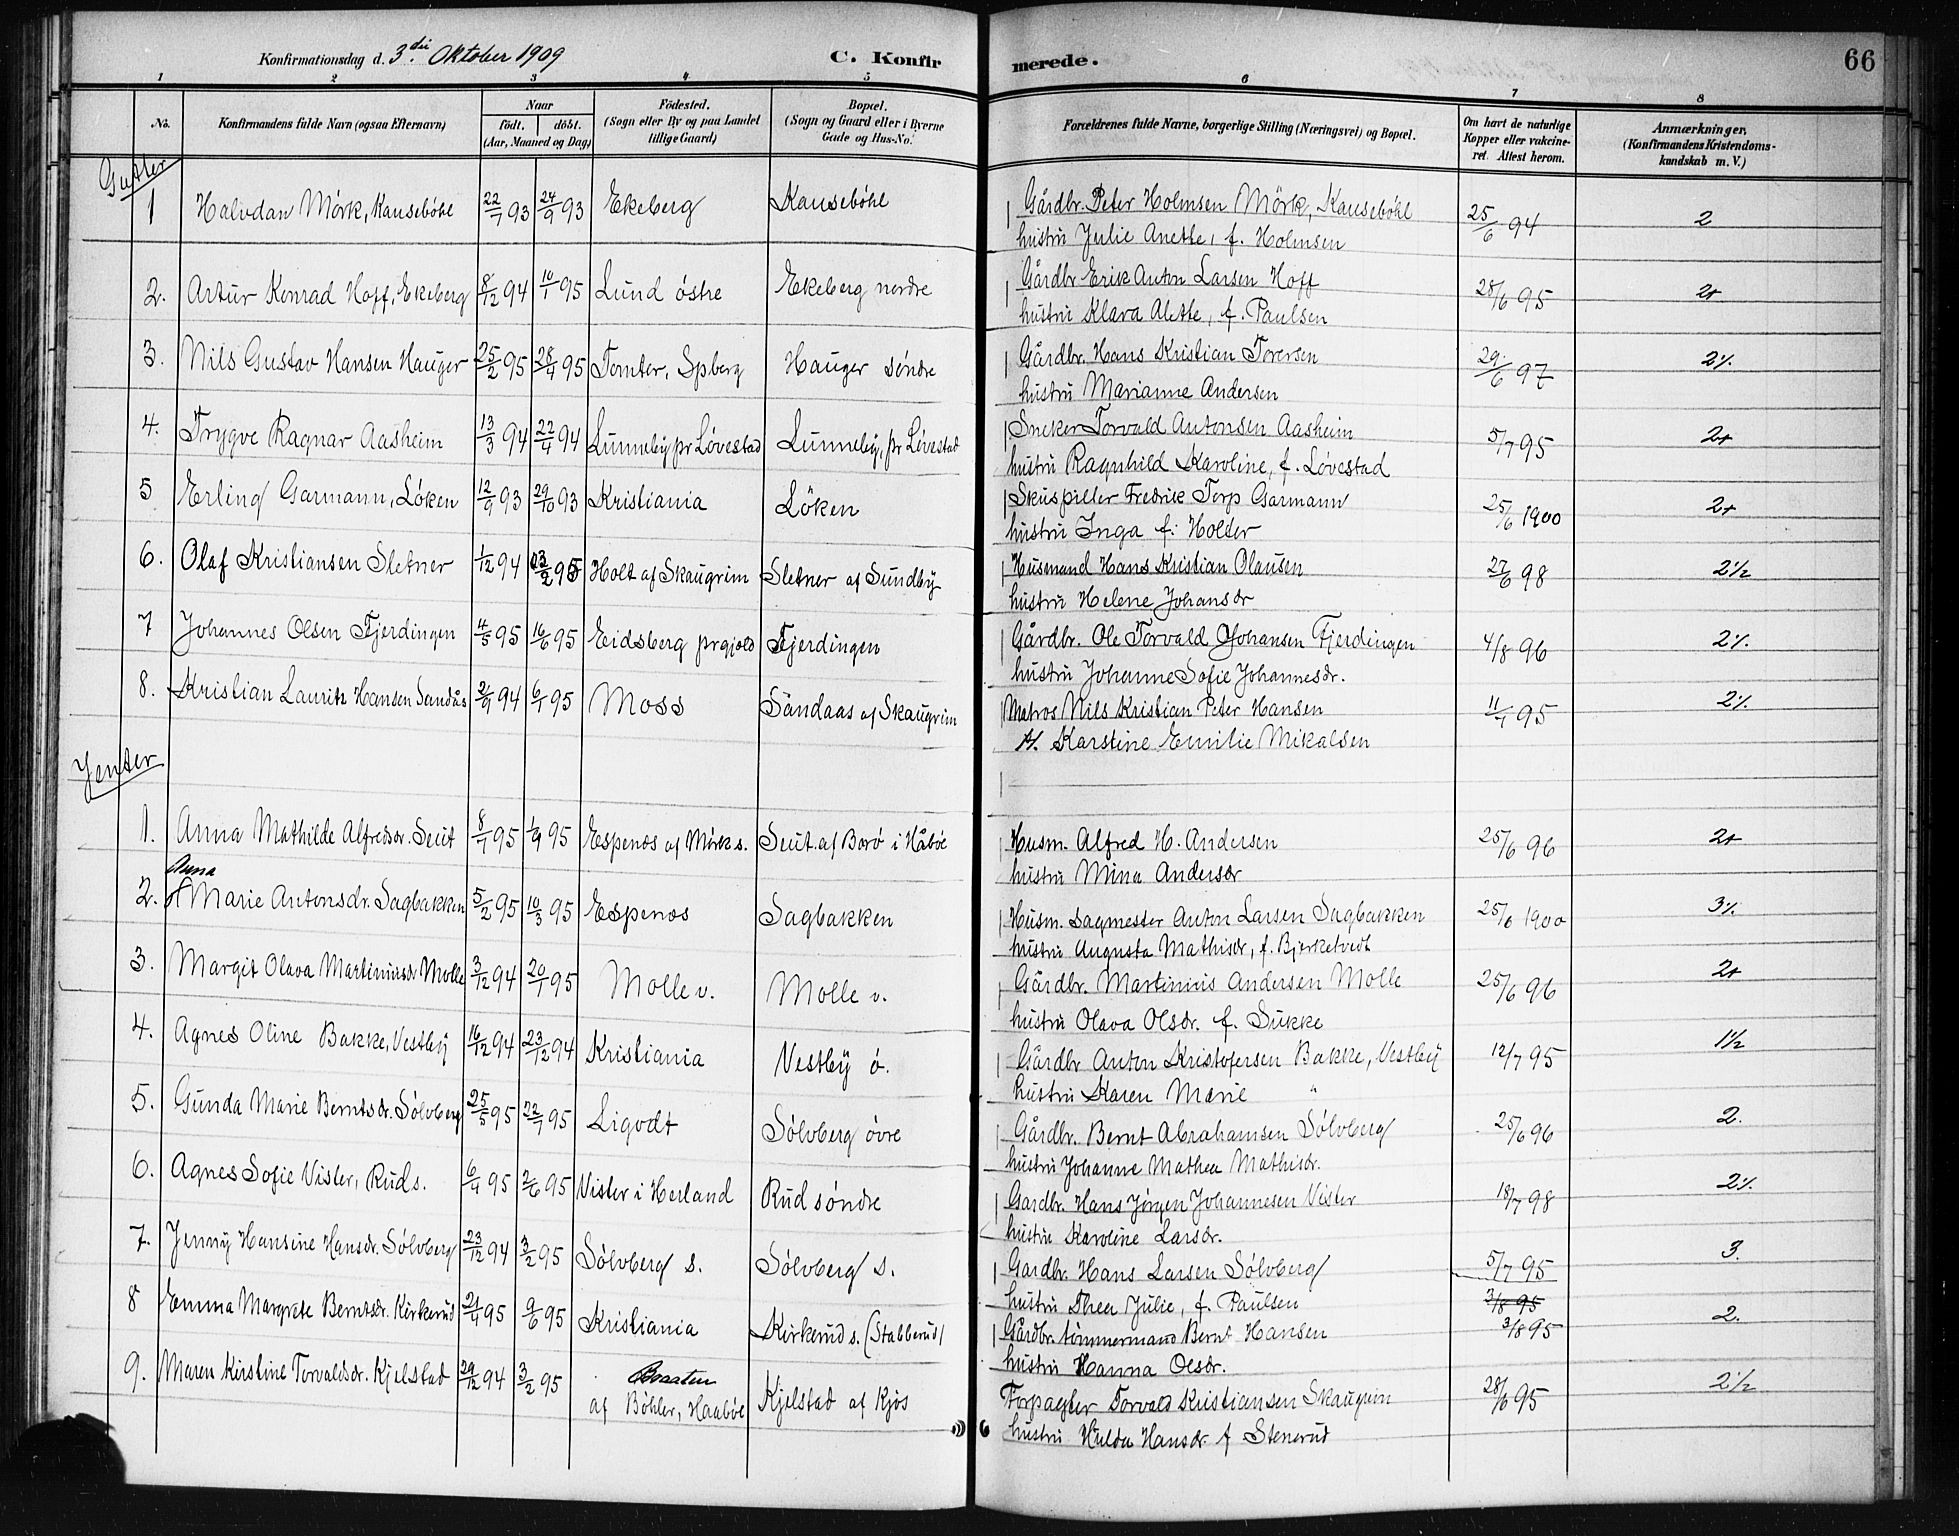 Konfirmationsdag d. 3die Oktober 1909
C. Konfirmerede.
66
1 2 3 4 5 6 7 8
No.
Konfirmandens fulde Navn (ogsaa Efternavn)
Naar
födt. döbt.
(Aar, Maaned og Dag)
Födested.
(Sogn eller By og paa Landet
tillige Gaard)
Bopæl.
(Sogn og Gaard eller i Byerne
Gade og Hus-No.)
Forældrenes fulde Navne, borgerlige Stilling (Næringsvei) og Bopæl.
Om havt de naturlige
Kopper eller vakcine-
ret. Attest herom.
Anmærkninger.
(Konfirmandens Kristendoms-
kundskab m. V.)
Gutter
1 Halvdan Mörk, Kausebøhl 22/7 93 24/9 93 Ekeberg Kausebøhl Gårdbr. Peter Holmsen Mörk, Kausebøhl 25/6 94 2
hustru Julie Anette, f. Holmsen
2. Artur Konrad Hoff, Ekeberg 8/12 94 10/1 95 Lund østre Ekeberg nordre Gårdbr. Erik Anton Larsen Hoff 28/6 95 2+
hustru Klara Alette, f. Paulsen
3. Nils Gustav Hansen Hauger 25/2 95 28/4 95 Tomter, Spberg Hauger søndre Gårdbr. Hans Kristian Torersen 29/6 97 2%
hustru Marianne Andersen
4. Trygve Ragnar Aasheim 13/3 94 22/4 94 Lunneby pr Løvestad Lunneby, pr Løvestad Sneker Torvald Antonsen Aasheim 5/7 95 2+
hustru Ragnhild Karoline, f. Løvestad
5 Erling Garmann, Løken 12/9 93 29/10 93 Kristiania Löken Skuspiller Fredrik Torp Garmann 25/6 1900 2+
hustru Inga f. Holter
6. Olaf Kristiansen Sletner 1/12 94 23/2 95 Holt af Skaugrim Sletner af Sundby Husmand Hans Kristian Olausen 27/6 98 2 1/2
hustru Helene Johansdr
7 Johannes Olsen Fjerdingen 4/5 95 16/6 95 Eidsberg prgjeld Fjerdingen Gårdbr. Ole Torvald Johansen Fjerdingen 4/8 96 2%
hustru Johanne Sofie Johannesdr.
8. Kristian Lauritz Hansen Sandås 2/9 94 6/1 95 Moss Sandaas af Skaugrim Matros Nils Kristian Peter Hansen 11/7 95 2%
H. Karstine Emilie Mikalsen
Jenter
1. Anna Mathilde Alfredsdr. Seut 8/7 95 1/9 95 Espenæs af Mörk s. Seut af Borø i Håbøl Husm. Alfred H. Andersen 25/6 96 2+
hustru Mina Andersdr
Anna
2. Marie Antonsdr. Sagbakken 5/2 95 10/3 95 Espenæs Sagbakken Husm. sagmester Anton Larsen Sagbakken 25/6 1900 3%
hustru Augusta Mathisdr, f. Bjerketvedt
3. Margit Olava Martiniusdr Molle 3/12 94 20/1 95 Molle v. Molle v. Gårdbr. Martinius Andersen Molle 25/6 96 2+
hustru Olava Olsdr. f. Sukke
4. Agnes Oline Bakke, Vestby 16/12 94 23/12 94 Kristiania Vestby ø. Gårdbr Anton Kristofersen Bakke, Vestby 12/7 95 1 1/2
hustru Karen Marie "
5. Gunda Marie Berntsdr. Sølvberg 25/5 95 22/7 95 Ligodt Sølvberg øvre Gårdbr. Bernt Abrahamsen Sølvberg 25/6 96 2.
hustru Johanne Mathea Mathisdr.
6. Agnes Sofie Vister, Rud s. 6/4 95 2/6 95 Vister i Herland Rud søndre Gardbr. Hans Jörgen Johannesen Vister 18/7 98 2%
hustru Karoline Larsdr.
7. Jenny Hansine Hansdr. Sølvberg 23/12 94 3/2 95 Sølvberg s. Sølvberg s. Gardbr. Hans Larsen Sølvberg 5/7 95 3.
hustru Thea Julie, f. Paulsen 3/8 95
8 Emma Margrete Berntsdr. Kirkerud 21/4 95 9/6 95 Kristiania Kirkerud s. (Stabberud) Gårdbr. tømmermand Bernt Hansen 3/8 95 2.
hustru Hanna Olsdr.
9. Maren Kirstine Torvaldsdr. Kjelstad 29/12 94 3/2 95 Braaten Kjelstad af Kjos Forpagter Torvald Kristiansen Skaugrim 28/6 95 2 1/2
af Bøhler, Haabøl hustru Hulda Hansdr. f Stenerud